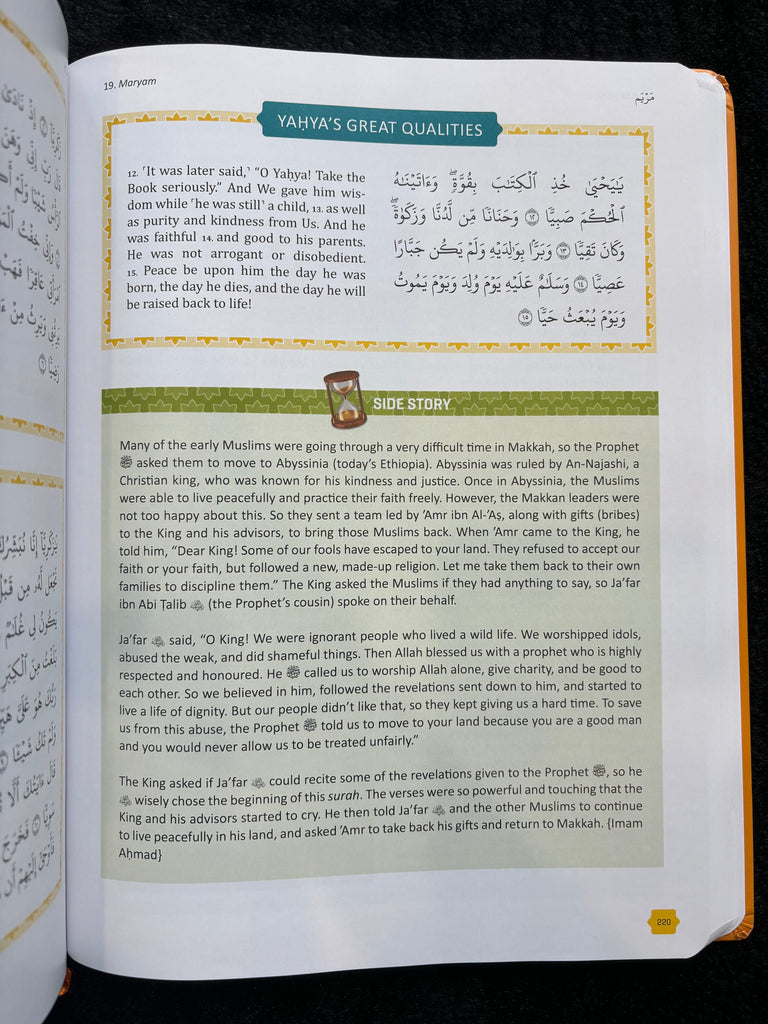 19. Maryam
مَرْيَم
YAḤYA'S GREAT QUALITIES
12. ˹It was later said,˺ “O Yaḥya! Take the
Book seriously.” And We gave him wis-
dom while ˹he was still˺ a child, 13. as well
as purity and kindness from Us. And he
was faithful 14. and good to his parents.
He was not arrogant or disobedient.
15. Peace be upon him the day he was
born, the day he dies, and the day he will
be raised back to life!
يَـٰيَحْيَىٰ خُذِ ٱلْكِتَـٰبَ بِقُوَّةٍۢ ۖ وَءَاتَيْنَـٰهُ
ٱلْحُكْمَ صَبِيًّۭا ١٢ وَحَنَانًۭا مِّن لَّدُنَّا وَزَكَوٰةًۭ ۖ
وَكَانَ تَقِيًّۭا ١٣ وَبَرًّۢا بِوَٰلِدَيْهِ وَلَمْ يَكُن جَبَّارًا
عَصِيًّۭا ١٤ وَسَلَـٰمٌ عَلَيْهِ يَوْمَ وُلِدَ وَيَوْمَ يَمُوتُ
وَيَوْمَ يُبْعَثُ حَيًّۭا ١٥
SIDE STORY
Many of the early Muslims were going through a very difficult time in Makkah, so the Prophet
ﷺ asked them to move to Abyssinia (today's Ethiopia). Abyssinia was ruled by An-Najashi, a
Christian king, who was known for his kindness and justice. Once in Abyssinia, the Muslims
were able to live peacefully and practice their faith freely. However, the Makkan leaders were
not too happy about this. So they sent a team led by 'Amr ibn Al-'Aṣ, along with gifts (bribes)
to the King and his advisors, to bring those Muslims back. When 'Amr came to the King, he
told him, “Dear King! Some of our fools have escaped to your land. They refused to accept our
faith or your faith, but followed a new, made-up religion. Let me take them back to their own
families to discipline them.” The King asked the Muslims if they had anything to say, so Ja'far
ibn Abi Ṭalib (the Prophet's cousin) spoke on their behalf.
Ja'far said, “O King! We were ignorant people who lived a wild life. We worshipped idols,
abused the weak, and did shameful things. Then Allah blessed us with a prophet who is highly
respected and honoured. He ﷺ called us to worship Allah alone, give charity, and be good to
each other. So we believed in him, followed the revelations sent down to him, and started to
live a life of dignity. But our people didn't like that, so they kept giving us a hard time. To save
us from this abuse, the Prophet ﷺ told us to move to your land because you are a good man
and you would never allow us to be treated unfairly.”
The King asked if Ja'far could recite some of the revelations given to the Prophet ﷺ, so he
wisely chose the beginning of this surah. The verses were so powerful and touching that the
King and his advisors started to cry. He then told Ja'far and the other Muslims to continue
to live peacefully in his land, and asked 'Amr to take back his gifts and return to Makkah. {Imam
Aḥmad}
220